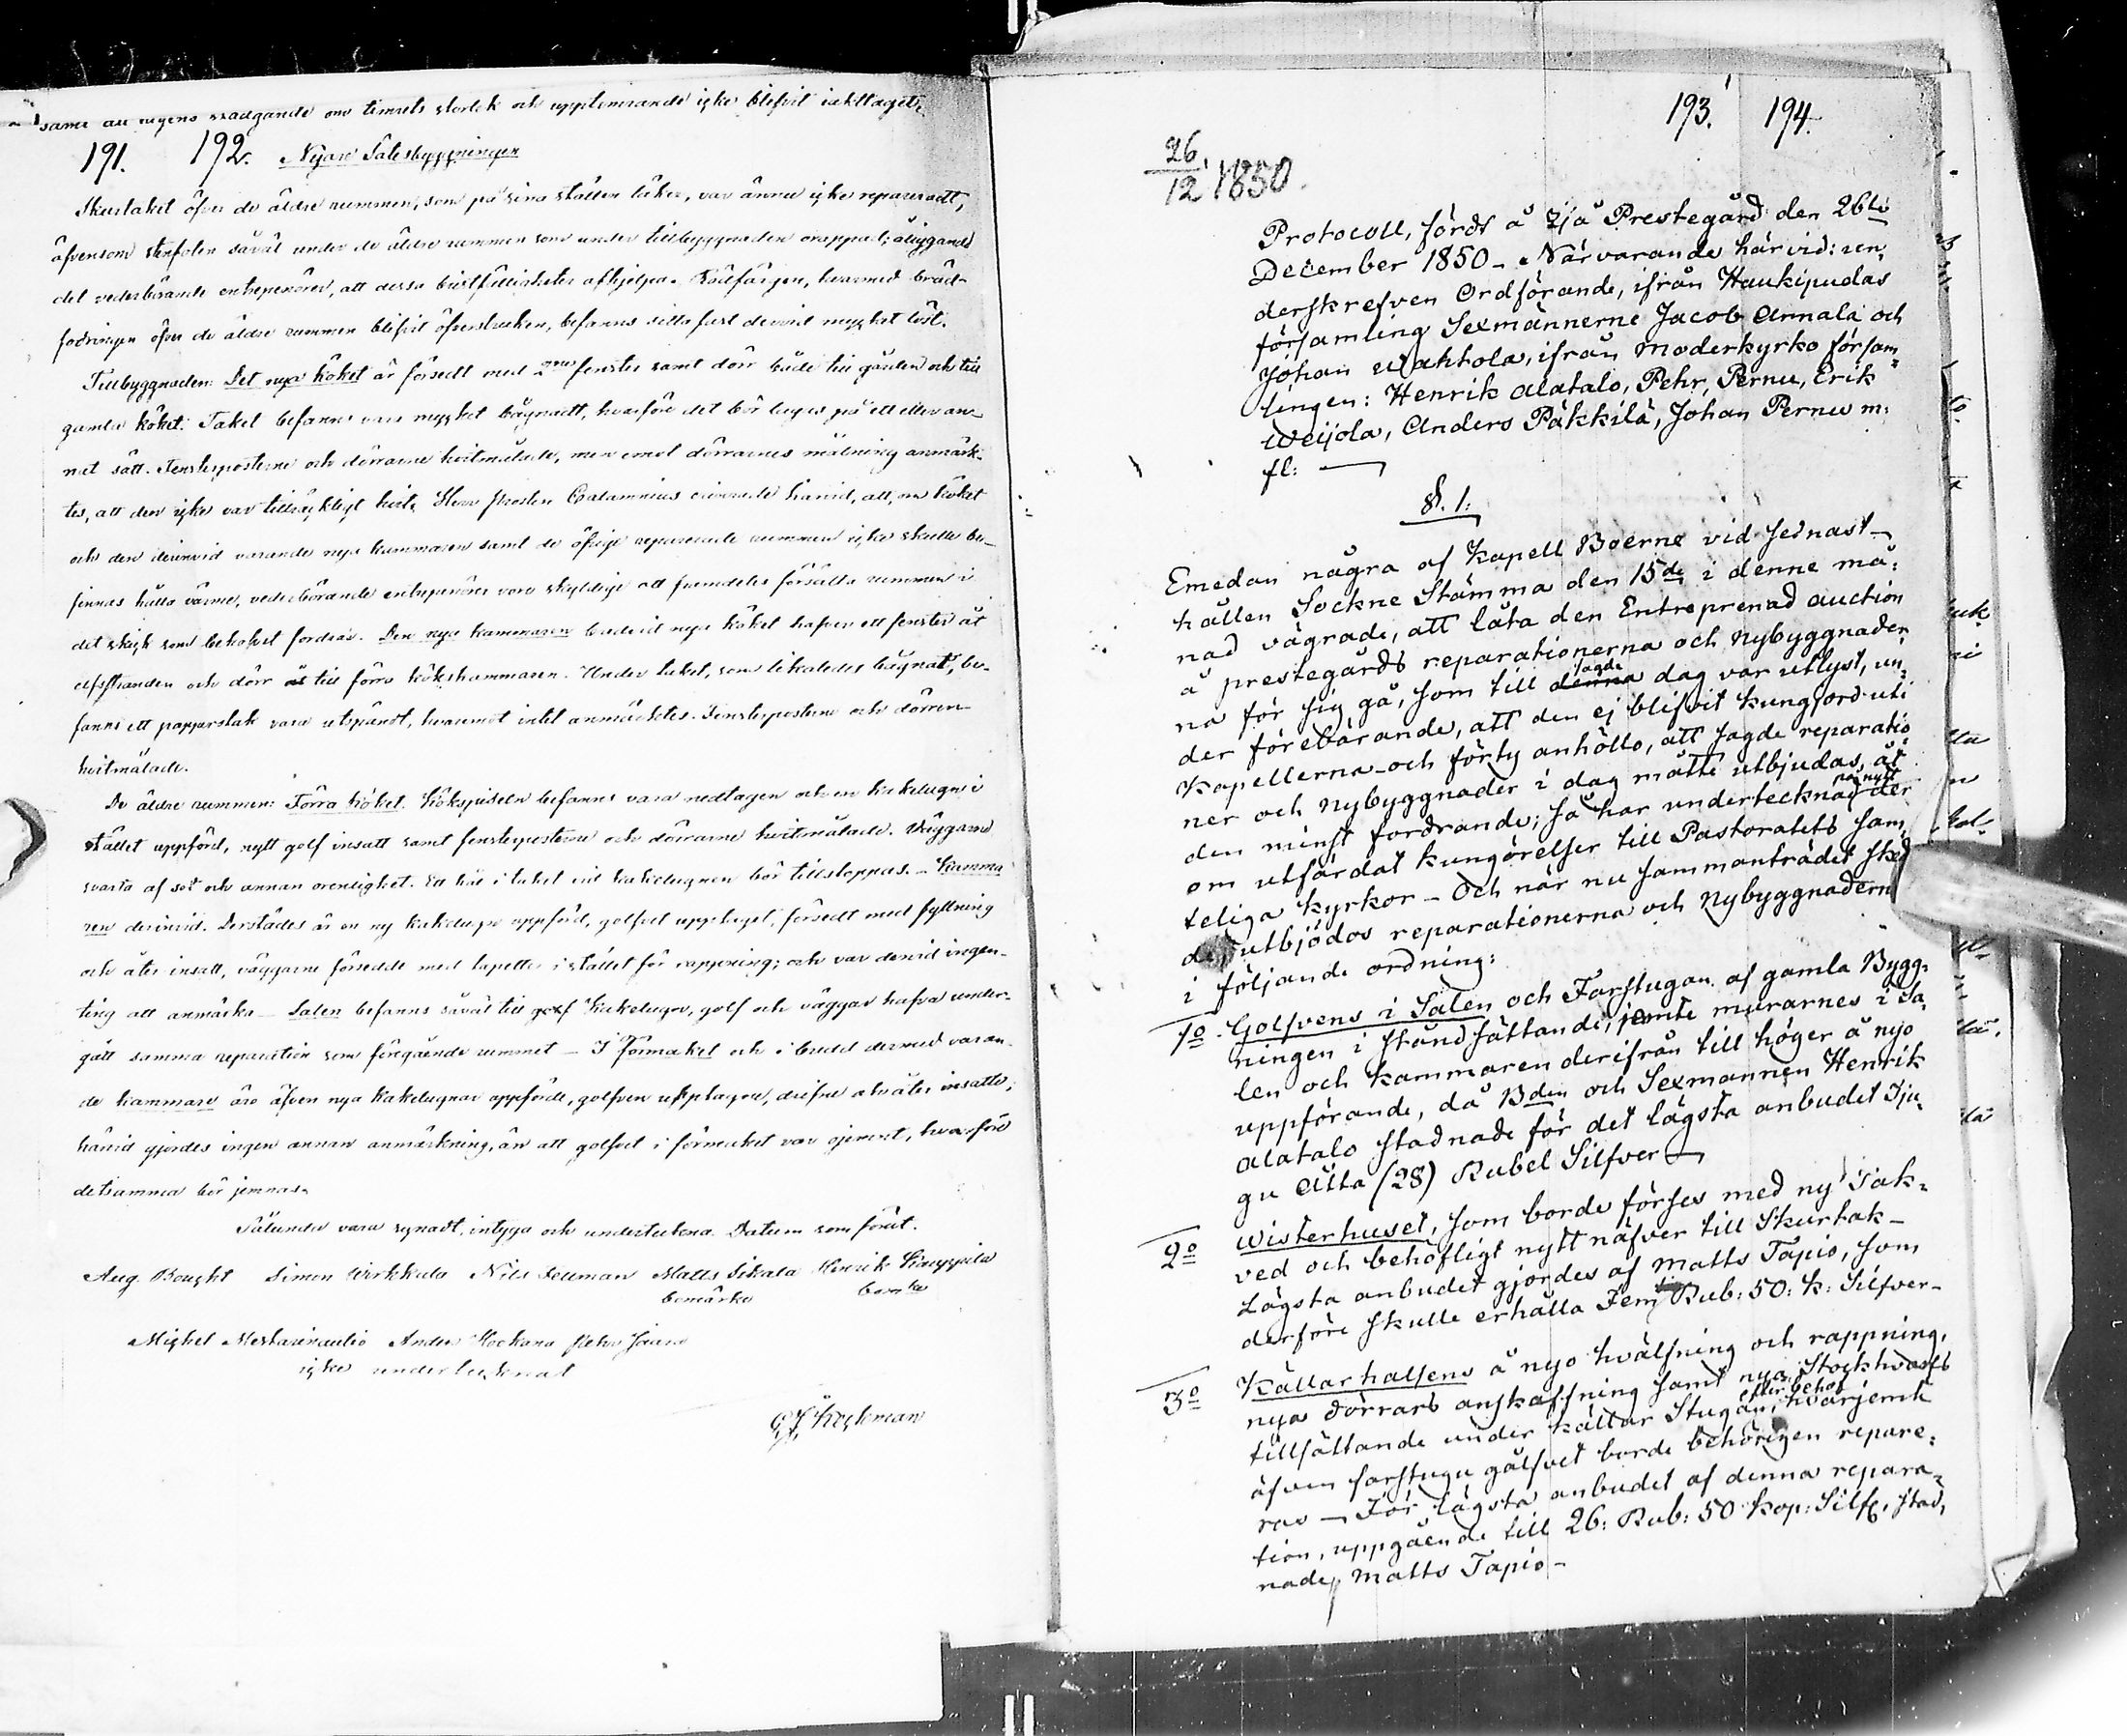 same an ingens stadgande om timrets storlek och upptimrande icke blifvit iakttaget.
191. 192. Nyare Sätesbyggningen
Skurtaket öfver de äldre rummen, som på sina ställen läker, var ännu icke repareradt,
äfvensom stenfoten såväl under de äldre rummen som under tillbyggnaden orappad; åliggande
det vederbörande entreprenörer, att dessa bristfälligheter afhjelpa. Rödfärgen, hvarmed bräd-
fodringen öfver de äldre rummen blifvit öfverstruken, befanns sitta fast dervid mycket löst.
Tillbyggnaden: Det nya köket är försedt med 2ne fenster samt dörr både till gården och till
gamla köket. Taket befanns vara mycket bågnadt, hvarföre det bör lagas på ett eller an-
nat sätt. Fensterposterne och dörrarne hvitmålade, men emot dörrarnes målning anmärk-
tes, att den icke var tillräckligt hvit. Herr Prosten Calamnius erinrade härvid, att, om köket
och den derinvid varande nya kammaren samt de öfrige reparerade rummen icke skulle be-
finnas hålla värme, vederbörande entreprenörer voro skyldige att framdeles försätta rummen i
det skick som behofvet fordrar. Den nya kammaren bredevid nya köket hafver ett fenster åt
elfstranden och dörr åt till förra kökskammaren. Under taket, som likaledes bågnat, be-
fanns ett papperstak vara utspändt, hvaremot intet anmärktes. Fensterposterne och dörren
hvitmålade.
De äldre rummen: Förra köket. Kökspiseln befanns vara nedtagen och en kakelugn i
stället uppförd, nytt golf insatt samt fensterposterne och dörrarne hvitmålade. Väggarne
svarta af sot och annan orenlighet. Ett hål i taket vid kakelugnen bör tillstoppas. – Kamma
ren derinvid. Derstädes är en ny kakelugn uppförd, golfvet upptaget, försedt med fyllning
och åter insatt, väggarne försedde med tapeter i stället för rappning; och var dervid ingen-
ting att anmärka – Salen befanns såväl till golf kakelugn, golf och väggar hafva under-
gått samma reparation som föregående rummet – I Förmaket och i bredd dermed varan-
de kammare äro äfven nya kakelugnar uppförde, golfven upptagne, drefne och åter insatte;
härvid gjordes ingen annan anmärkning, än att golfvet i förmaket var ojemnt, hvarföre
detsamma bör jemnas.
Sålunda vara synadt, intyga och underteckna. Datum som förut.
Aug. Simon Wirkkula Nils Matts Sikala Henrik Kauppila
bomärke bomärke
Michel Anders Pehr
icke undertecknat
193. 194.
26/12 1850.
Protocoll, fördt å Ijå Prestegård den 26te
December 1850 – Närvarande härvid: un-
derskrefven Ordförande, ifrån Haukipudas
församling Sexmännerne Jacob Annala och
Johan Wahtola, ifrån moderkyrko försam-
lingen: Henrik Alatalo, Pehr Pernu, Erik
Weijola, Anders Päkkilä, Johan Pernu m:
fl: —
§. 1:
Emedan några af Kapell Boerne vid sednast
hållen Sockne Stämma den 15de i denne må-
nad vägrade, att låta den Entreprenad auction
å prestegårds reparationerna och nybyggnader
na för sig gå, som till denna sagde dag var utlyst, un-
der förebärande, att den ej blifvit kungjord uti
Kapellerna och förty anhöllo, att sagde reparatio
ner och nybyggnader i dag måtte utbjudas, åt
den minst fordrande; Så har undertecknad på nytt der
om utfärdat kungörelser till Pastoratets sam
teliga kyrkor – Och när nu sammanträdet sked
de, utbjödos reparationerna och nybyggnadern
i följande ordning:
1o Golfvens i Salen och Farstugan af gamla Bygg-
ningen i stånd sättande, jemte murarnes i Sa-
len och kammaren derifrån till höger å nyo
uppförande, då Bden och Sexmannen Henrik
Alatalo stadnade för det lägsta anbudet Tju-
gu Åtta (28) Rubel Silfver –
2o Wisterhuset, som borde förses med ny Tak-
ved och behöfligt nytt näfver till Skurtak –
Lägsta anbudet gjordes af Matts Tapio, som
derföre skulle erhålla Fem Rub: 50: k: Silfver –
3o Källarhalsens å nyo hvälfning och rappning,
nya dörrars anskaffning samt nya Stockhvarfs
tillsättande under källar Stugan, efter behof hvarjemte
äfven farstugu golfvet borde behörigen repare-
ras – För lägsta anbudet af denna repara-
tion, uppgående till 26: Rub: 50 Kop: Silfr, stad-
nade Matts Tapio –